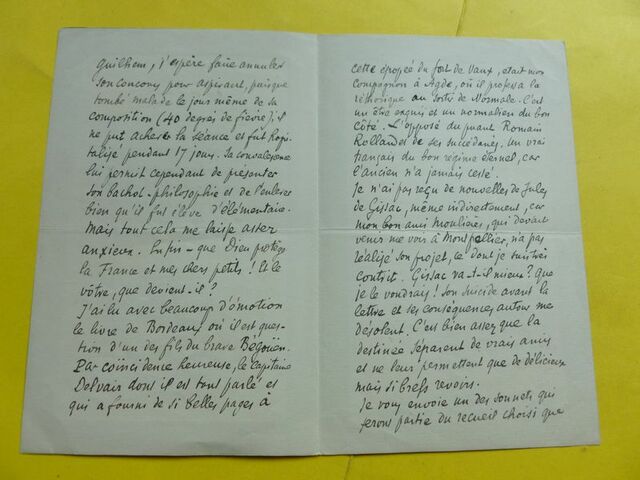 Guilhem, j'espère faire annuler
son concours pour aspirant, puisque
tombé malade le jour même de sa
composition (40 degrés de fièvre) il
ne put achever la séance et fut hospi-
talisé pendant 17 jours. Sa convalescence
lui permit cependant de présenter
son bachot-philosophie et de l'enlever
bien qu'il fût élève d'élémentaire.
Mais tout cela me laisse assez
anxieux. Enfin — que Dieu protège
la France et mes chers petits ! Et le
vôtre, que devient-il ?
J'ai lu avec beaucoup d'émotion
le livre de Bordeaux où il est ques-
tion d'un des fils du brave Bégouën.
Par coïncidence heureuse, le Capitaine
Delvais dont il est tant parlé et
qui a fourni de si belles pages à
cette épopée du fort de Vaux, était mon
compagnon à Agde, où il professa la
réthorique au sortir de Normale. C'est
un être exquis et un normalien du bon
côté. L'opposé du puant Romain
Rolland et de ses succédanés. Un vrai
français du bon régime éternel, car
l'ancien n'a jamais cessé.
Je n'ai pas reçu de nouvelles de Jules
de Gissac, même indirectement, car
mon bon ami Moulière, qui devait
venir me voir à Montpellier, n'a pas
réalisé son projet, ce dont je suis très
contrit. Gissac va-t-il mieux ? Que
je le voudrais ! Son suicide avant la
lettre et ses conséquences autour me
désolent. C'est bien assez que la
destinée séparent de vrais amis
et ne leur permettent que de délicieux
mais si brefs revoirs.
Je vous envoie un des sonnets qui
feront partie du recueil choisi que